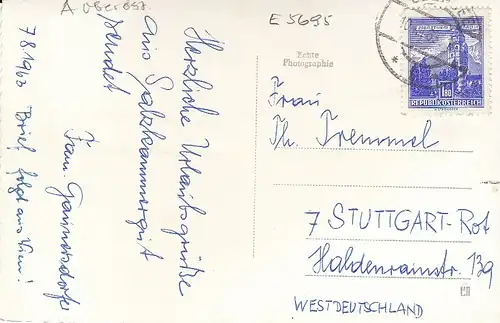 A Oberöst.
E 5695
Herzliche Urlaubsgrüße
aus Salzkammergut
sendet
Fam.
7.8.1963 Brief folgt aus Wien!
Echte
Photographie
1.80
REPUBLIK ÖSTERREICH
Frau
Th. Tremmel
7 STUTTGART-Rot
Haldenrainstr. 139
WESTDEUTSCHLAND